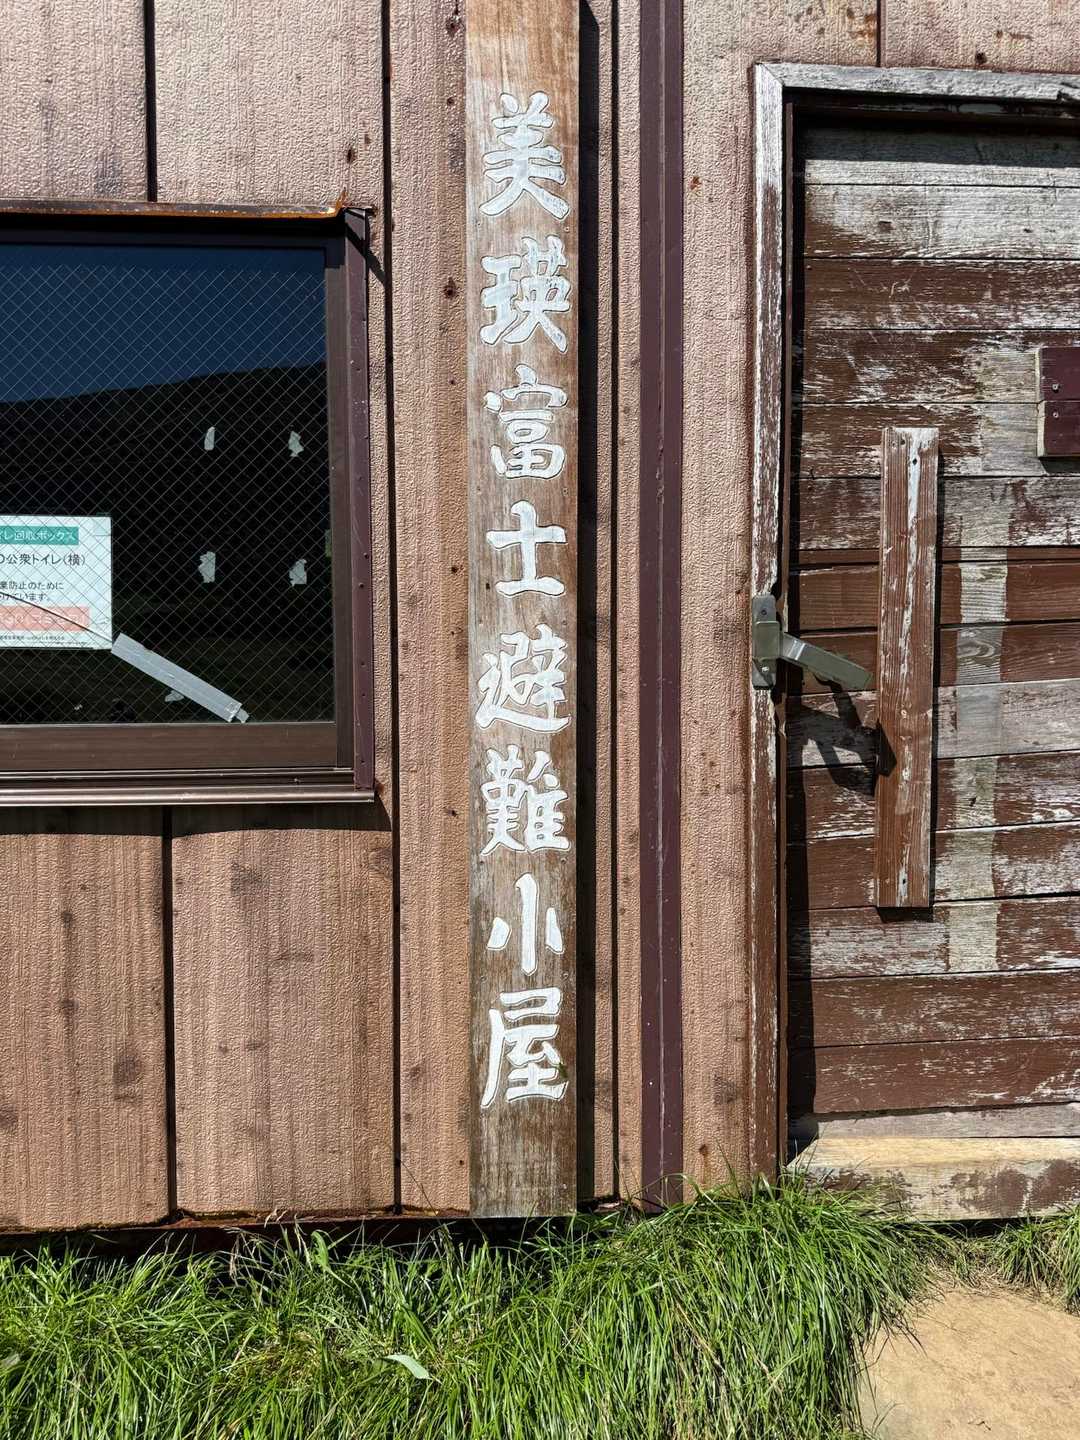 美瑛富士避難小屋
イレ回収ボックス
公衆トイレ(横)
防止のために
けています。